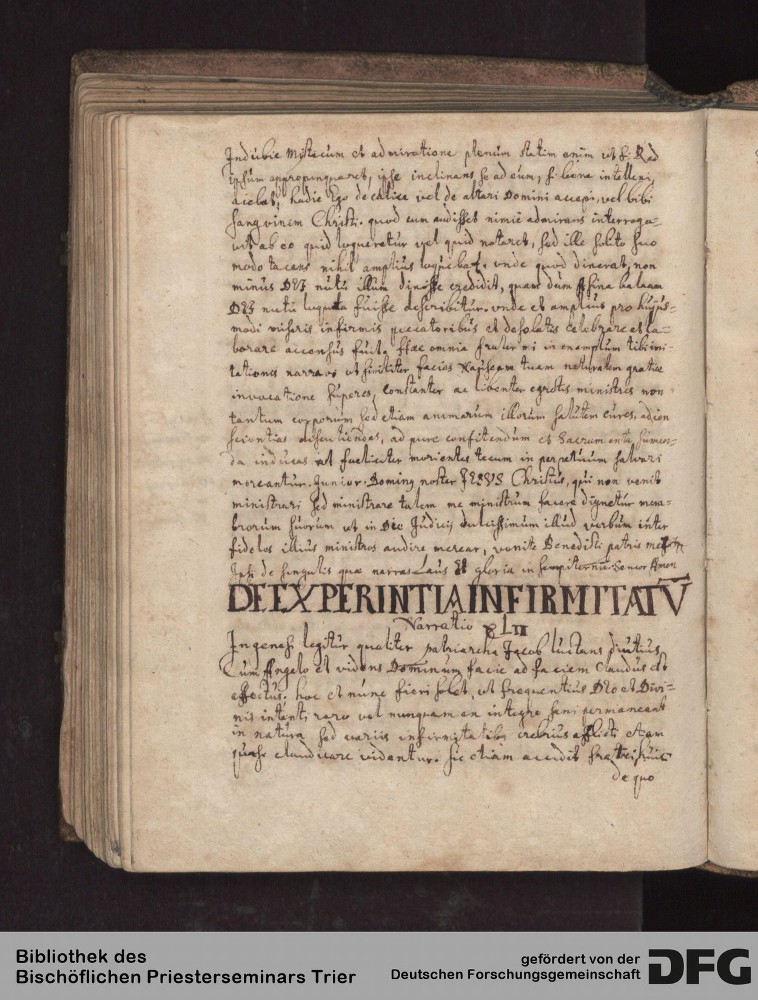 Indubie mysticum et admiratione plenum statim enim ut fr. Rad
ipsum appropinquaret, ipse inclinans se ad eum, si bene intellexi,
aiebat, hodie Ego de calice vel de altari Domini accepi, vel bibi
sanguinem Christi. quod cum audisset nimie admirans interroga-
vit ab eo quid loqueretur vel quid notaret, sed ille solito suo
modo tacens nihil amplius loquebat. unde quod dixerat, non
minus DEI nutu illum dixisse credidit, quam dum Asina balaam
DEI nutu loquta fuisse describitur. unde et amplius pro hujus-
modi miseris infirmis peccatoribus et desolatis celebrare et la-
borare accensus fuit. Haec omnia frater mi in exemplum tibi imi-
tationis narravi ut similiter facies nauseam tuam naturalem gratiae
invocatione superes, constanter ac libenter egrotis ministres non
tantum corporum sed etiam animarum illorum salutem cures,
scientias discutiendas, ad pure confitendum et Sacramenta sumen-
da inducas ut faeliciter morientes tecum in perpetuum salvari
mereantur. Junior. Dominus noster JESVS Christus, qui non venit
ministrari sed ministrare talem me ministrum facere dignetur mem-
brorum suorum ut in Die Judicij dulcissimum illud verbum inter
fideles illius ministros audire merear, venite Benedicti patris mei
de singulis quae narras Laus et gloria in sempiternum Senior Amen
DE EXPERINTIA INFIRMITATV̄
Narratio XLII
In genesi legitur qualiter patriarcha Jacob luctans diutius
Cum Angelo et videns Dominum facie ad faciem Claudus est
effectus. hoc et nunc fieri solet, ut frequentius DEO et Divi-
nis intenti raro vel nunquam en integre sani permaneant
in natura sed variis infirmitatibus crebrius afflicti etiam
quasi claudicare videantur. sic etiam accidit fratri huic
de quo
Bibliothek des
Bischöflichen Priesterseminars Trier
gefördert von der
Deutschen Forschungsgemeinschaft
DFG